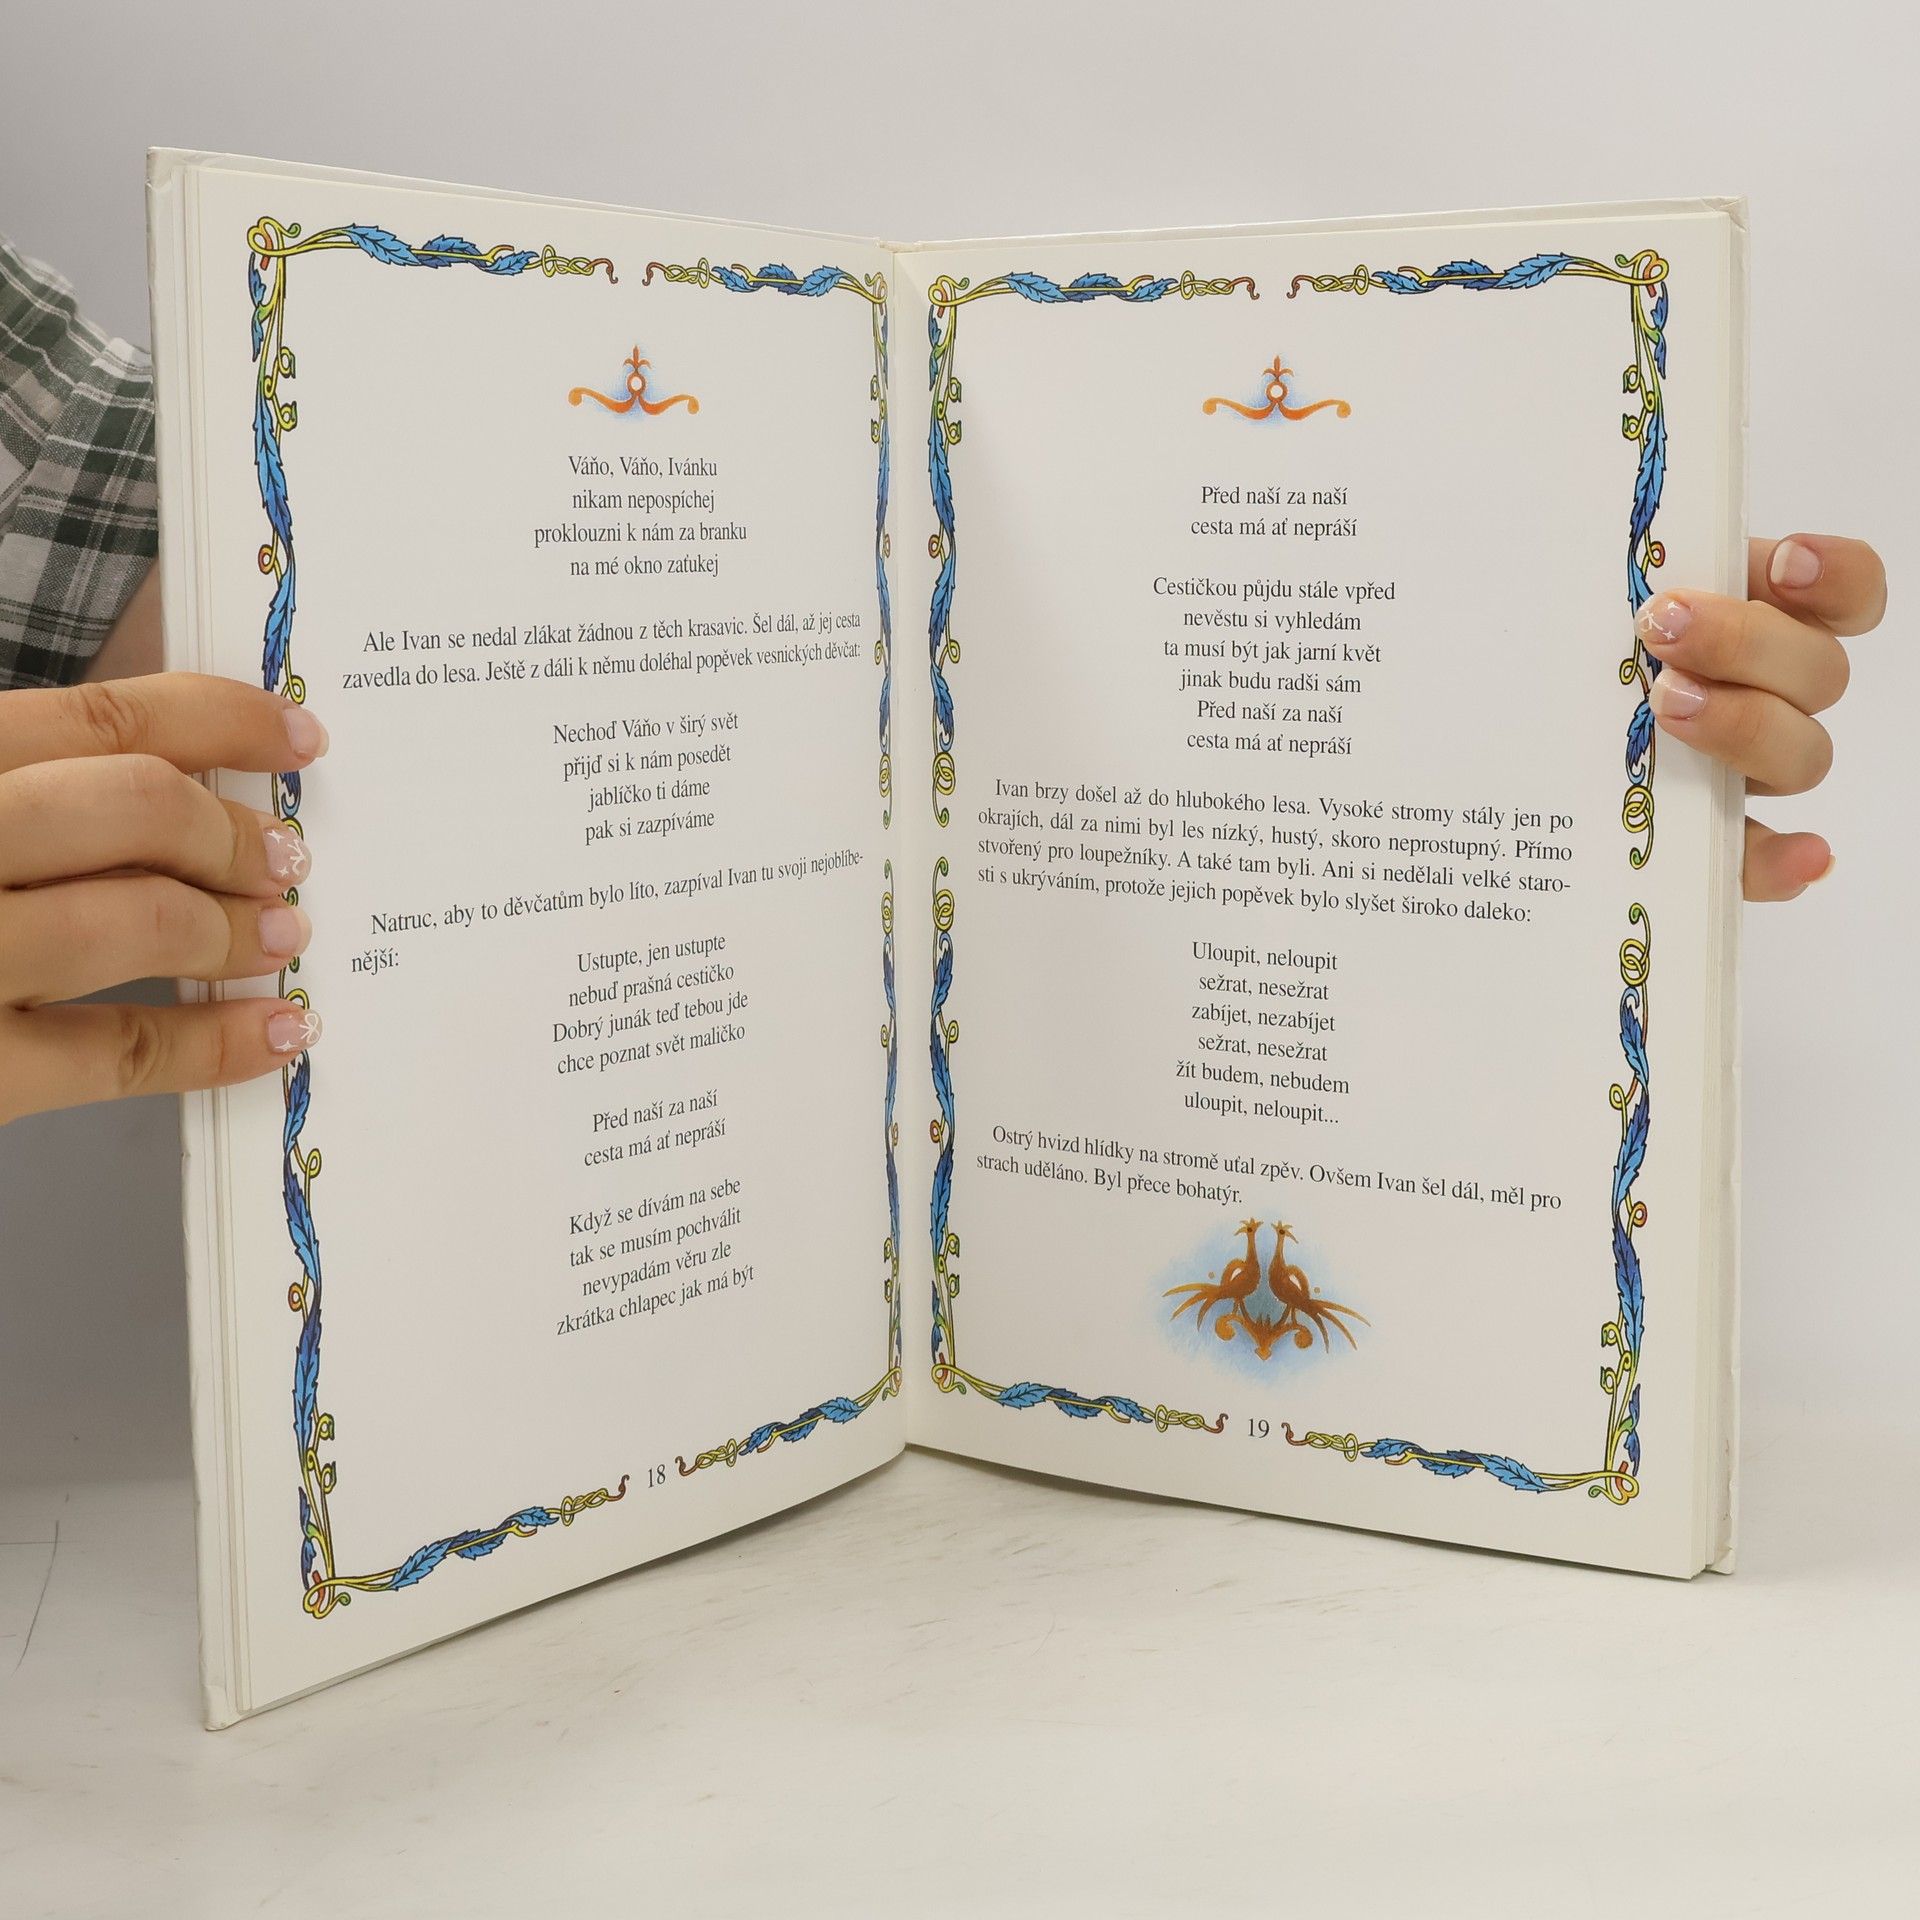 Váňo, Váňo, Ivánku
nikam nepospíchej
proklouzni k nám za branku
na mé okno zaťukej
Ale Ivan se nedal zlákat žádnou z těch krasavic. Šel dál, až jej cesta
zavedla do lesa. Ještě z dáli k němu doléhal popěvek vesnických děvčat:
Nechoď Váňo v širý svět
přijď si k nám posedět
jablíčko ti dáme
pak si zazpíváme
Natruc, aby to děvčatům bylo líto, zazpíval Ivan tu svoji nejoblíbe-
nější:
Ustupte, jen ustupte
nebuď prašná cestičko
Dobrý junák teď tebou jde
chce poznat svět maličko
Před naší za naší
cesta má ať nepráší
Když se dívám na sebe
tak se musím pochválit
nevypadám věru zle
zkrátka chlapec jak má být
18
Před naší za naší
cesta má ať nepráší
Cestičkou půjdu stále vpřed
nevěstu si vyhledám
ta musí být jak jarní květ
jinak budu radši sám
Před naší za naší
cesta má ať nepráší
Ivan brzy došel až do hlubokého lesa. Vysoké stromy stály jen po
okrajích, dál za nimi byl les nízký, hustý, skoro neprostupný. Přímo
stvořený pro loupežníky. A také tam byli. Ani si nedělali velké staro-
sti s ukrýváním, protože jejich popěvek bylo slyšet široko daleko:
Uloupit, neloupit
sežrat, nesežrat
zabíjet, nezabíjet
sežrat, nesežrat
žít budem, nebudem
uloupit, neloupit...
Ostrý hvizd hlídky na stromě uťal zpěv. Ovšem Ivan šel dál, měl pro
strach uděláno. Byl přece bohatýr.
19